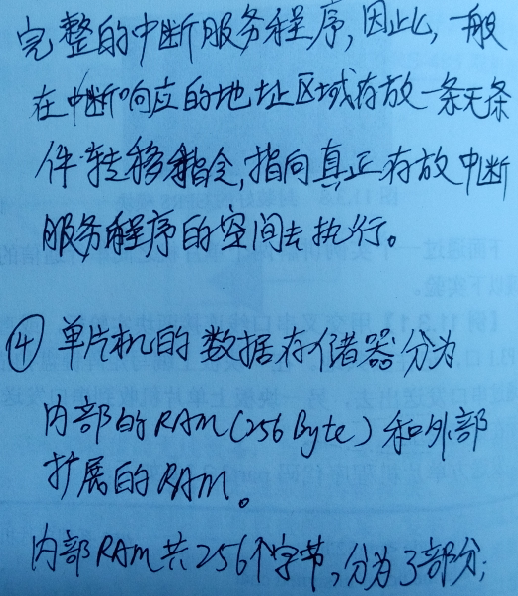 完整的中断服务程序,因此,一般
在中断响应的地址区域存放一条无条
件转移指令,指向真正存放中断
服务程序的空间去执行。
④ 单片机的数据存储器分为
内部的RAM(256 Byte)和外部
扩展的RAM。
内部RAM共256个字节,分为3部分;